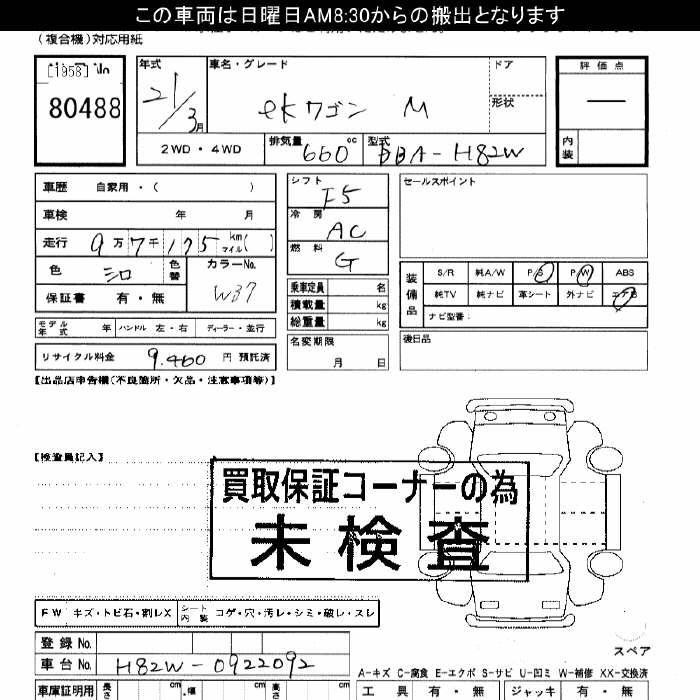 この車両は日曜日AM8:30からの搬出となります
(複合機)対応用紙
80488
年式 21/3月
車名・グレード ekワゴン M
ドア
形状
評価点 —
内装
2WD・4WD
排気量 660cc
型式 DBA-H82W
車歴 自家用・( )
車検 年 月
走行 9万7千175km マイル( )
色 シロ
色替
カラーNo. W37
保証書 有・無
シフト F5
冷房 AC
燃料 G
乗車定員 名
積載量 kg
総重量 kg
名変期限 月 日
セールスポイント
装備品
S/R 純A/W P/S P/W ABS
純TV 純ナビ 革シート 外ナビ エアB
ナビ型番:
後日品
モデル年式 年 ハンドル 左・右 ディーラー・並行
リサイクル料金 9,460 円 預託済
【出品店申告欄(不良箇所・欠品・注意事項等)】
【検査員記入】
買取保証コーナーの為
未検査
FW キズ・トビ石・割レX
シート内装 コゲ・穴・汚レ・シミ・破レ・スレ
登録 No.
車台 No. H82W-0922092
スペア
A-キズ C-腐食 E-エクボ S-サビ U-凹ミ W-補修 XX-交換済
車庫証明用 長さ cm 幅 cm 高さ cm
工具 有・無 ジャッキ 有・無